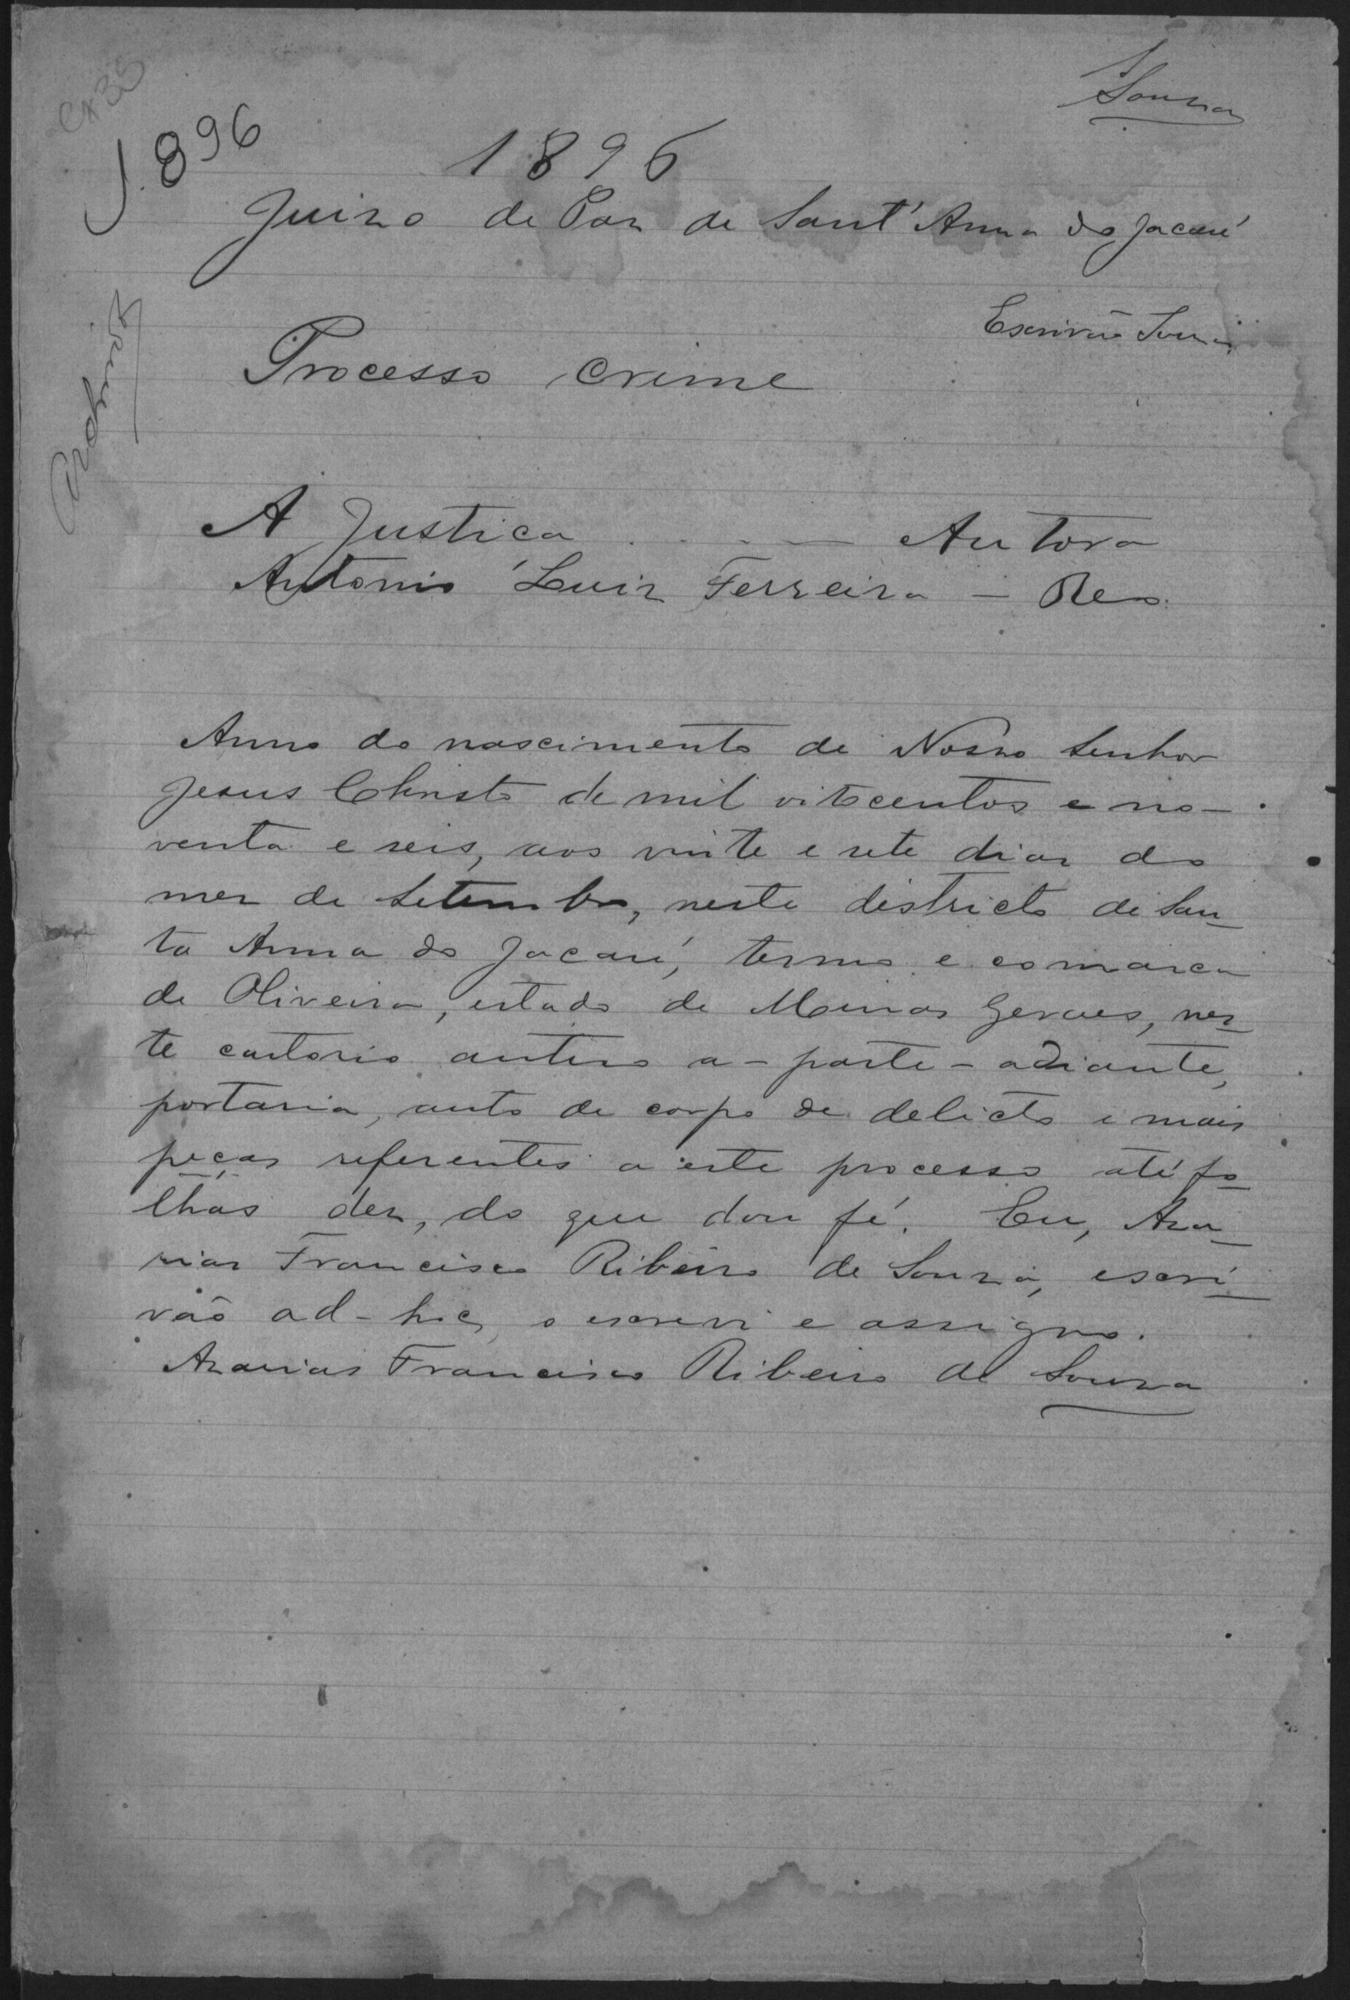 Souza
Cx 35
1.896
1896
Juizo de Paz de Sant'Anna do Jacaré
Escrivão Souza
Processo crime
A Justiça - Autora
Antonio Luiz Ferreira - Reo.
Anno do nascimento de Nosso Senhor
Jesus Christo de mil oitocentos e no-
venta e seis, aos vinte e sete dias do
mez de Setembro, neste districto de San-
ta Anna do Jacaré, termo e comarca
de Oliveira, estado de Minas Geraes, nes-
te cartorio autuo a-parte-adiante,
portaria, auto de corpo de delicto e mais
peças referentes a este processo até fo-
lhas dez, do que dou fé. Eu, Aza-
rias Francisco Ribeiro de Souza, escri-
vão ad-hoc, o escrevi e assigno.
Azarias Francisco Ribeiro de Souza